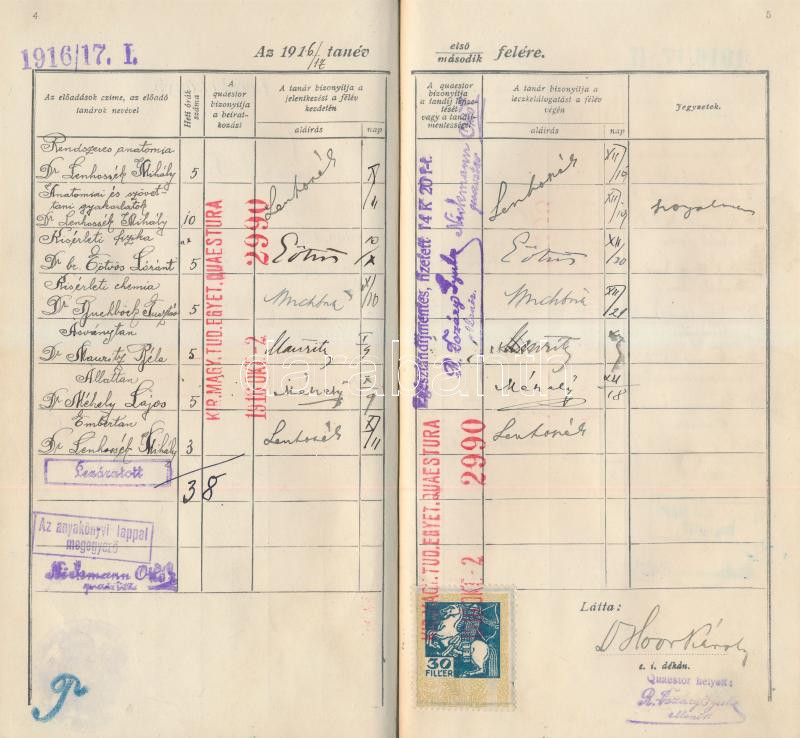 4
1916/17. I.
Az 1916/17 tanév
Az előadások czíme, az előadó tanárok nevével
Heti órák száma
A quaestor bizonyítja a beiratkozást
A tanár bizonyítja a jelentkezést a félév kezdetén
aláírás
nap
Rendszeres anatomia
Dr Lenhossék Mihály 5
Lenhossék
X/11
Anatomiai és szövet-
tani gyakorlatok
Dr Lenhossék Mihály 10
Kisérleti fizika
Dr br. Eötvös Loránt 5
Eötvös
Kisérleti chemia
Dr Buchböck Gusztáv 5
Buchböck
Ásványtan
Dr Mauritz Béla 5
Mauritz
Állattan
Dr Méhely Lajos 5
Méhely
Embertan
Dr Lenhossék Mihály 3
Lenhossék
X/11
38
KIR. MAGY. TUD. EGYET. QUAESTURA
1916 OKT -2
2990
Lezáratott
Az anyakönyvi lappal
megegyező
Nickmann Ottó
quaestor
5
első
második
felére.
A quaestor bizonyítja a tandíj lefizetését vagy a tandíjmentességet
A tanár bizonyítja a leczkelátogatást a félév végén
aláírás
nap
Jegyzetek.
Lenhossék
XII/19
XII/19
szorgalmas
Eötvös
XII/20
Buchböck
XII/21
Mauritz
Méhely
XII/18
Lenhossék
Nickmann Ottó
quaestor
R. Tozáry Gyula
ellenőr
KIR. MAGY. TUD. EGYET. QUAESTURA
OKT -2
2990
30
FILLÉR
Látta:
Dr Hoor Károly
e. i. dékán.
Quaestor helyett:
R. Tozáry Gyula
ellenőr
darabanth